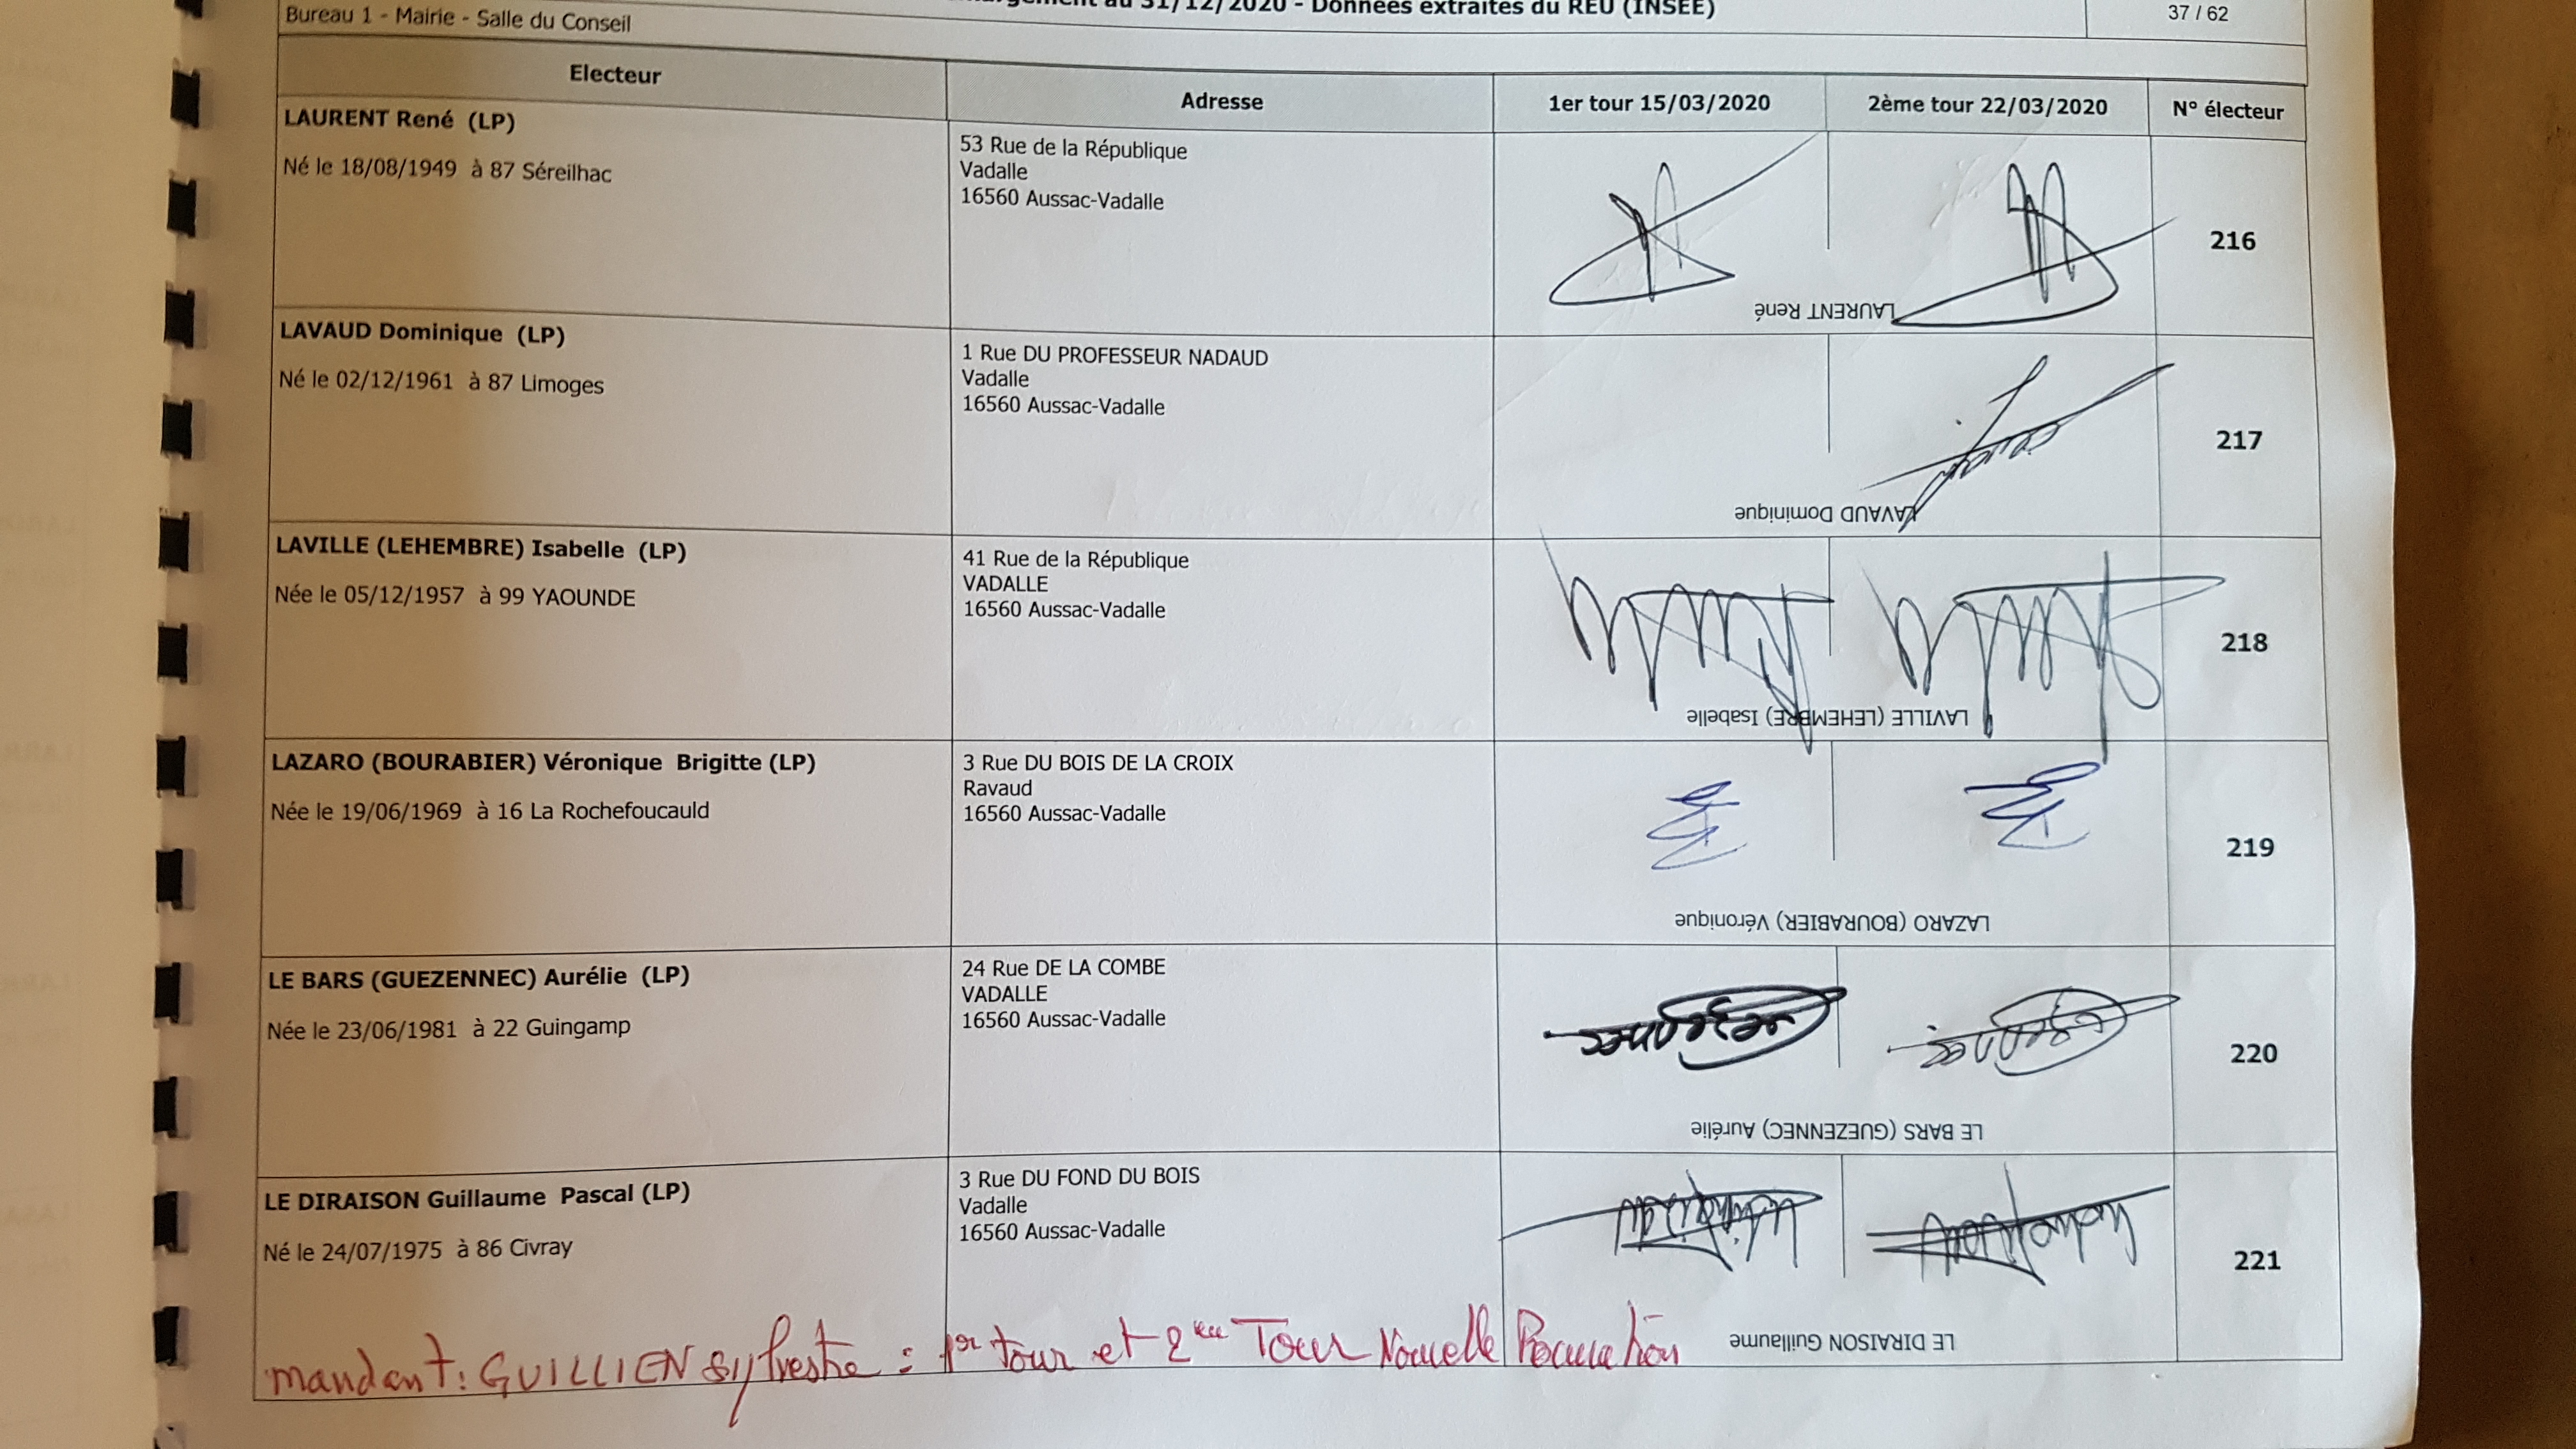 Bureau 1 - Mairie - Salle du Conseil
au 31/12/2020 - Données extraites du REU (INSEE)
37 / 62
Electeur
Adresse
1er tour 15/03/2020
2ème tour 22/03/2020
N° électeur
LAURENT René (LP)
Né le 18/08/1949 à 87 Séreilhac
53 Rue de la République
Vadalle
16560 Aussac-Vadalle
LAURENT René
216
LAVAUD Dominique (LP)
Né le 02/12/1961 à 87 Limoges
1 Rue DU PROFESSEUR NADAUD
Vadalle
16560 Aussac-Vadalle
LAVAUD Dominique
217
LAVILLE (LEHEMBRE) Isabelle (LP)
Née le 05/12/1957 à 99 YAOUNDE
41 Rue de la République
VADALLE
16560 Aussac-Vadalle
LAVILLE (LEHEMBRE) Isabelle
218
LAZARO (BOURABIER) Véronique Brigitte (LP)
Née le 19/06/1969 à 16 La Rochefoucauld
3 Rue DU BOIS DE LA CROIX
Ravaud
16560 Aussac-Vadalle
LAZARO (BOURABIER) Véronique
219
LE BARS (GUEZENNEC) Aurélie (LP)
Née le 23/06/1981 à 22 Guingamp
24 Rue DE LA COMBE
VADALLE
16560 Aussac-Vadalle
LE BARS (GUEZENNEC) Aurélie
220
LE DIRAISON Guillaume Pascal (LP)
Né le 24/07/1975 à 86 Civray
3 Rue DU FOND DU BOIS
Vadalle
16560 Aussac-Vadalle
LE DIRAISON Guillaume
221
mandant: GUILLIEN Sylvestre : 1er tour et 2ème Tour Nouvelle